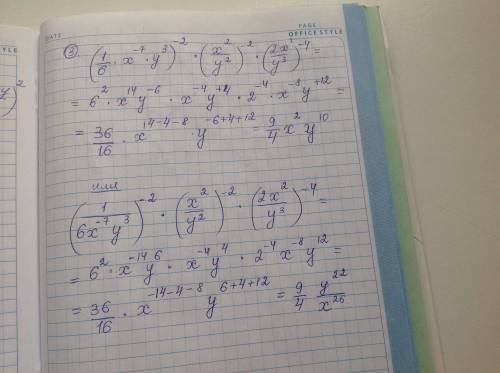 DATE
PAGE
OFFICE STYLE
STYLE
③ (1/6 · x⁻⁷ · y³)⁻² · (x²/y²)⁻² · (2x²/y³)⁻⁴ =
= 6² · x¹⁴y⁻⁶ · x⁻⁴y⁺⁴ · 2⁻⁴ · x⁻⁸y⁺¹² =
= 36/16 · x¹⁴⁻⁴⁻⁸ y⁻⁶⁺⁴⁺¹² = 9/4 x²y¹⁰
или
(1/6x⁻⁷y³)⁻² · (x²/y²)⁻² · (2x²/y³)⁻⁴ =
= 6² · x⁻¹⁴y⁶ · x⁻⁴y⁴ · 2⁻⁴x⁻⁸y¹² =
= 36/16 · x⁻¹⁴⁻⁴⁻⁸ y⁶⁺⁴⁺¹² = 9/4 y²²/x²⁶